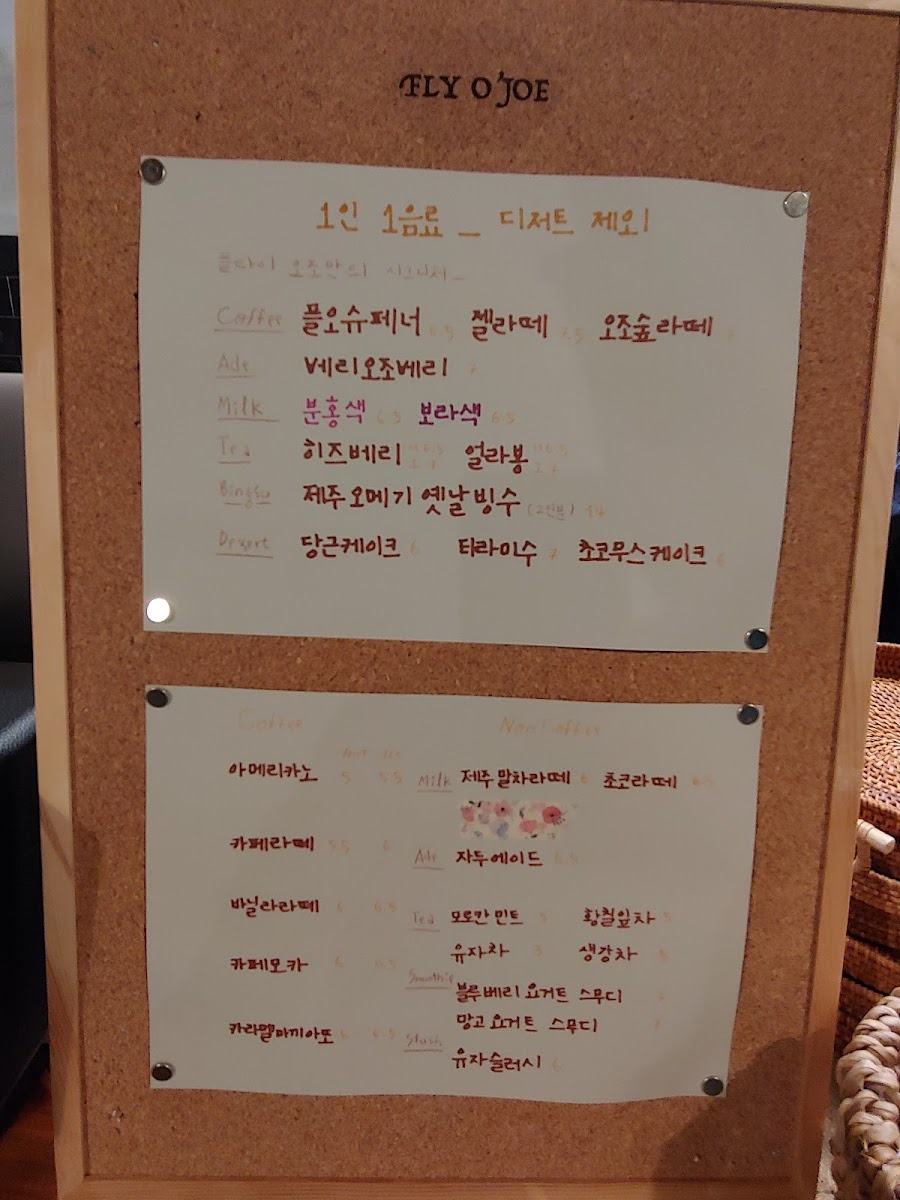 FLY O'JOE
1인 1음료 _ 디저트 제외
플라이 오조만의 시그니처_
Coffee 플오슈페너 6.5 젤라떼 7.5 오조숲라떼 7
Ade 베리오조베리 7
Milk 분홍색 6.5 보라색 6.5
Tea 히즈베리 얼라봉
Bingsu 제주오메기 옛날빙수 (2인분) 14
Dessert 당근케이크 6 티라미수 7 초코무스케이크 6
Coffee Non Coffee
Hot Ice
아메리카노 5 5.5 Milk 제주말차라떼 6 초코라떼 6.5
카페라떼 5.5 6 Ade 자두에이드 6.5
바닐라라떼 6 6.5 Tea 모로칸 민트 5 황칠잎차 5
유자차 5 생강차 5
카페모카 6 6.5 Smoothie 블루베리 요거트 스무디 7
망고 요거트 스무디 7
카라멜마끼아또 6 6.5 Slush 유자슬러시 6